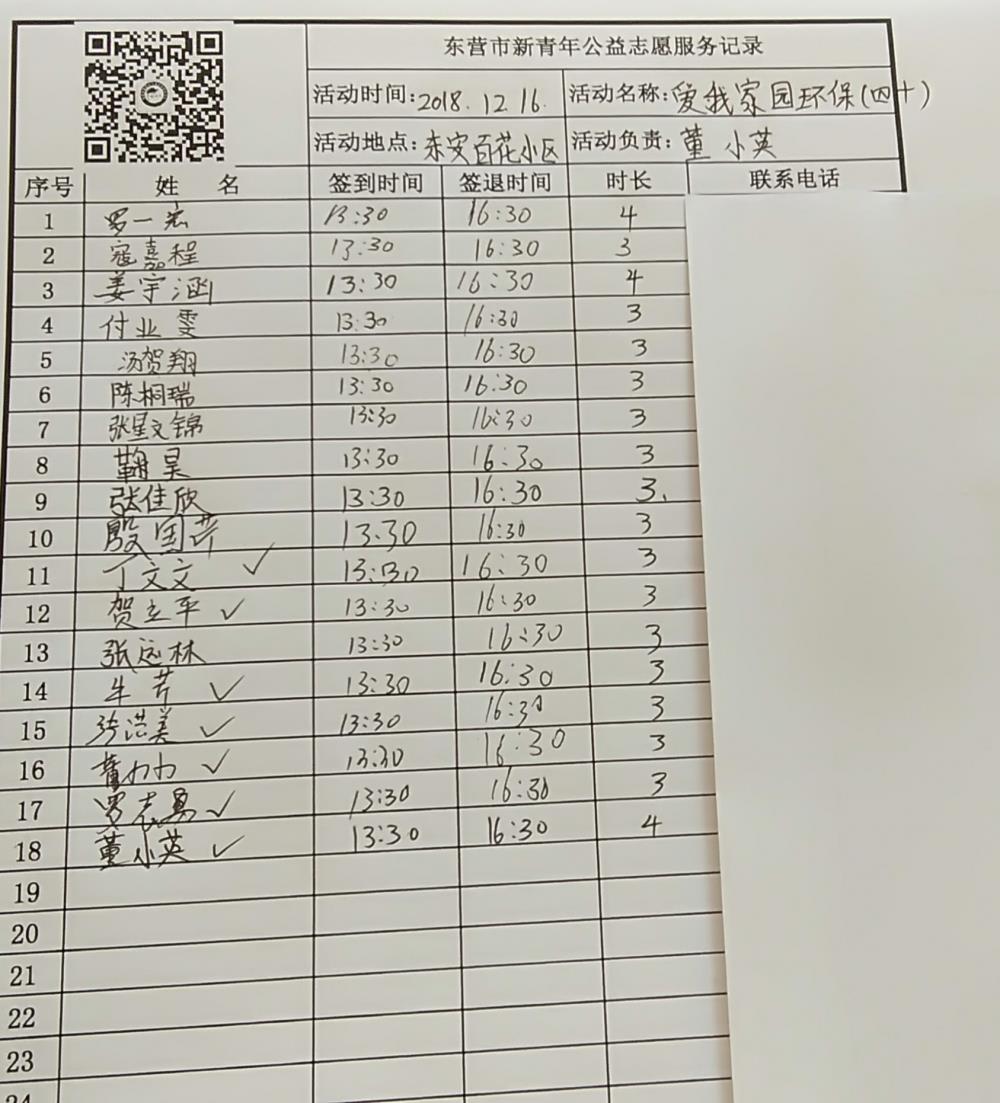 东营市新青年公益志愿服务记录
活动时间:2018.12.16. 活动名称:爱我家园环保(四十)
活动地点:东安百花小区 活动负责:董小英
序号 姓 名 签到时间 签退时间 时长 联系电话
1 罗一宏 13:30 16:30 4
2 寇嘉程 13:30 16:30 3
3 姜宇涵 13:30 16:30 4
4 付业雯 13:30 16:30 3
5 汤贺翔 13:30 16:30 3
6 陈桐瑞 13:30 16:30 3
7 张星文锦 13:30 16:30 3
8 鞠昊 13:30 16:30 3
9 张佳欣 13:30 16:30 3.
10 殷国芹 13:30 16:30 3
11 丁文文 ✓ 13:30 16:30 3
12 贺立平 ✓ 13:30 16:30 3
13 张远林 13:30 16:30 3
14 牛芹 ✓ 13:30 16:30 3
15 张洪美 ✓ 13:30 16:30 3
16 ✓ 13:30 16:30 3
17 罗志勇 ✓ 13:30 16:30 3
18 董小英 ✓ 13:30 16:30 4
19
20
21
22
23
24